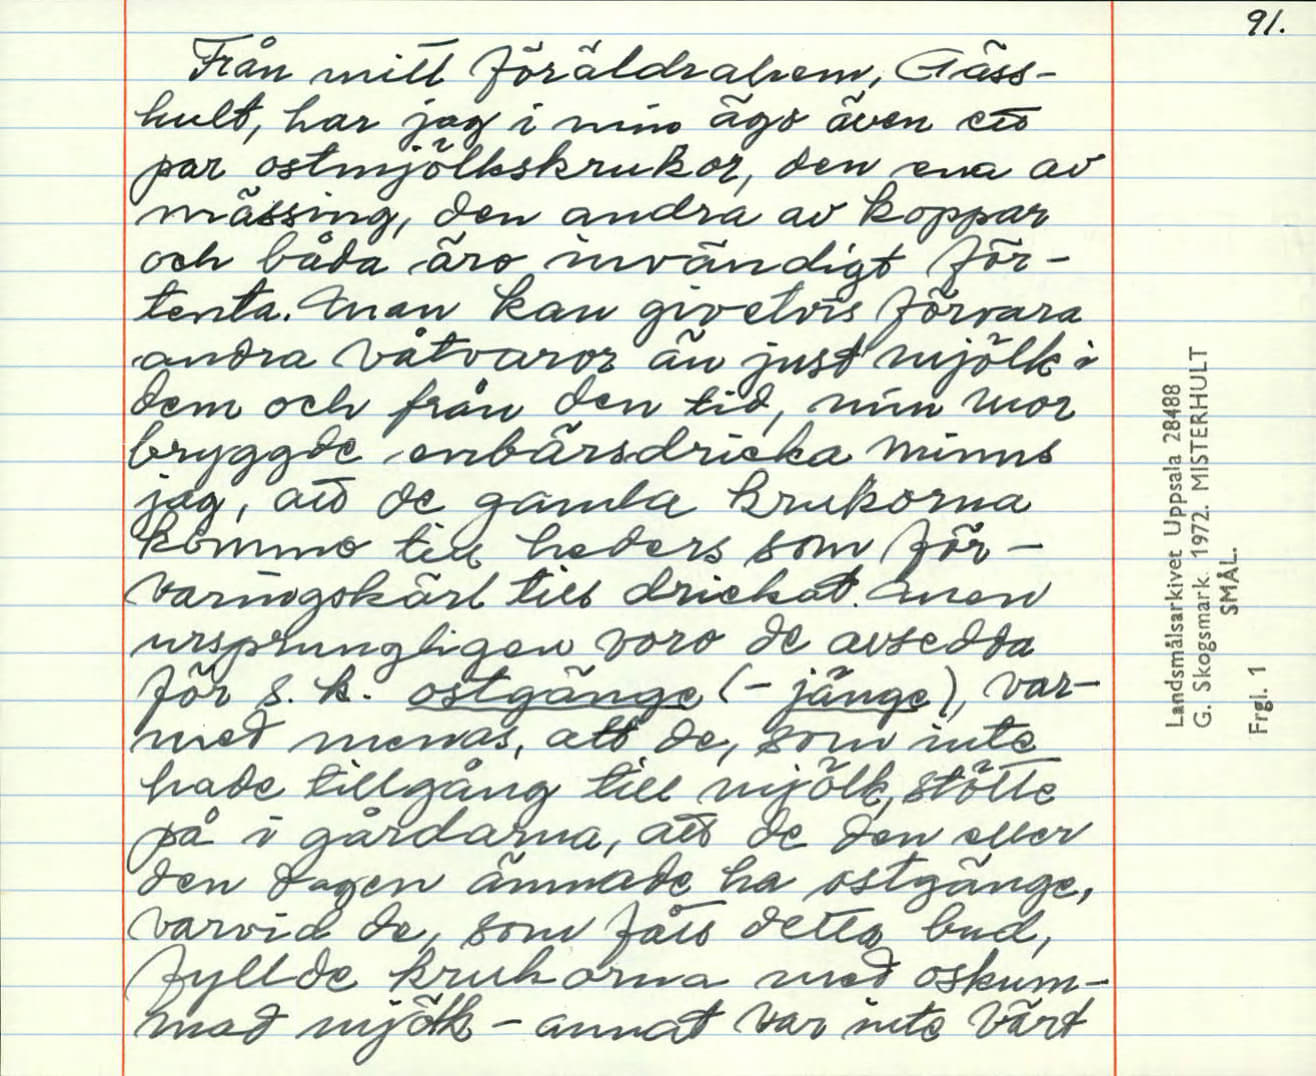 91.
Från mitt föräldrahem, Gäss-
hult, har jag i min ägo även ett
par ostmjölkskrukor, den ena av
mässing, den andra av koppar
och båda äro invändigt för-
tenta. Man kan givetvis förvara
andra våtvaror än just mjölk i
dem och från den tid, min mor
bryggde enbärsdricka minns
jag, att de gamla krukorna
kommo till heders som för-
varingskärl till drickat. Men
ursprungligen voro de avsedda
för s. k. ostgänge (- jänge), var-
med menas, att de, som inte
hade tillgång till mjölk, stötte
på i gårdarna, att de den eller
den dagen ämnade ha ostgänge,
varvid de, som fått detta bud,
fyllde krukorna med oskum-
mad mjölk - annat var inte värt
Landsmålsarkivet Uppsala 28488
G. Skogsmark. 1972. MISTERHULT
SMÅL.
Frgl. 1